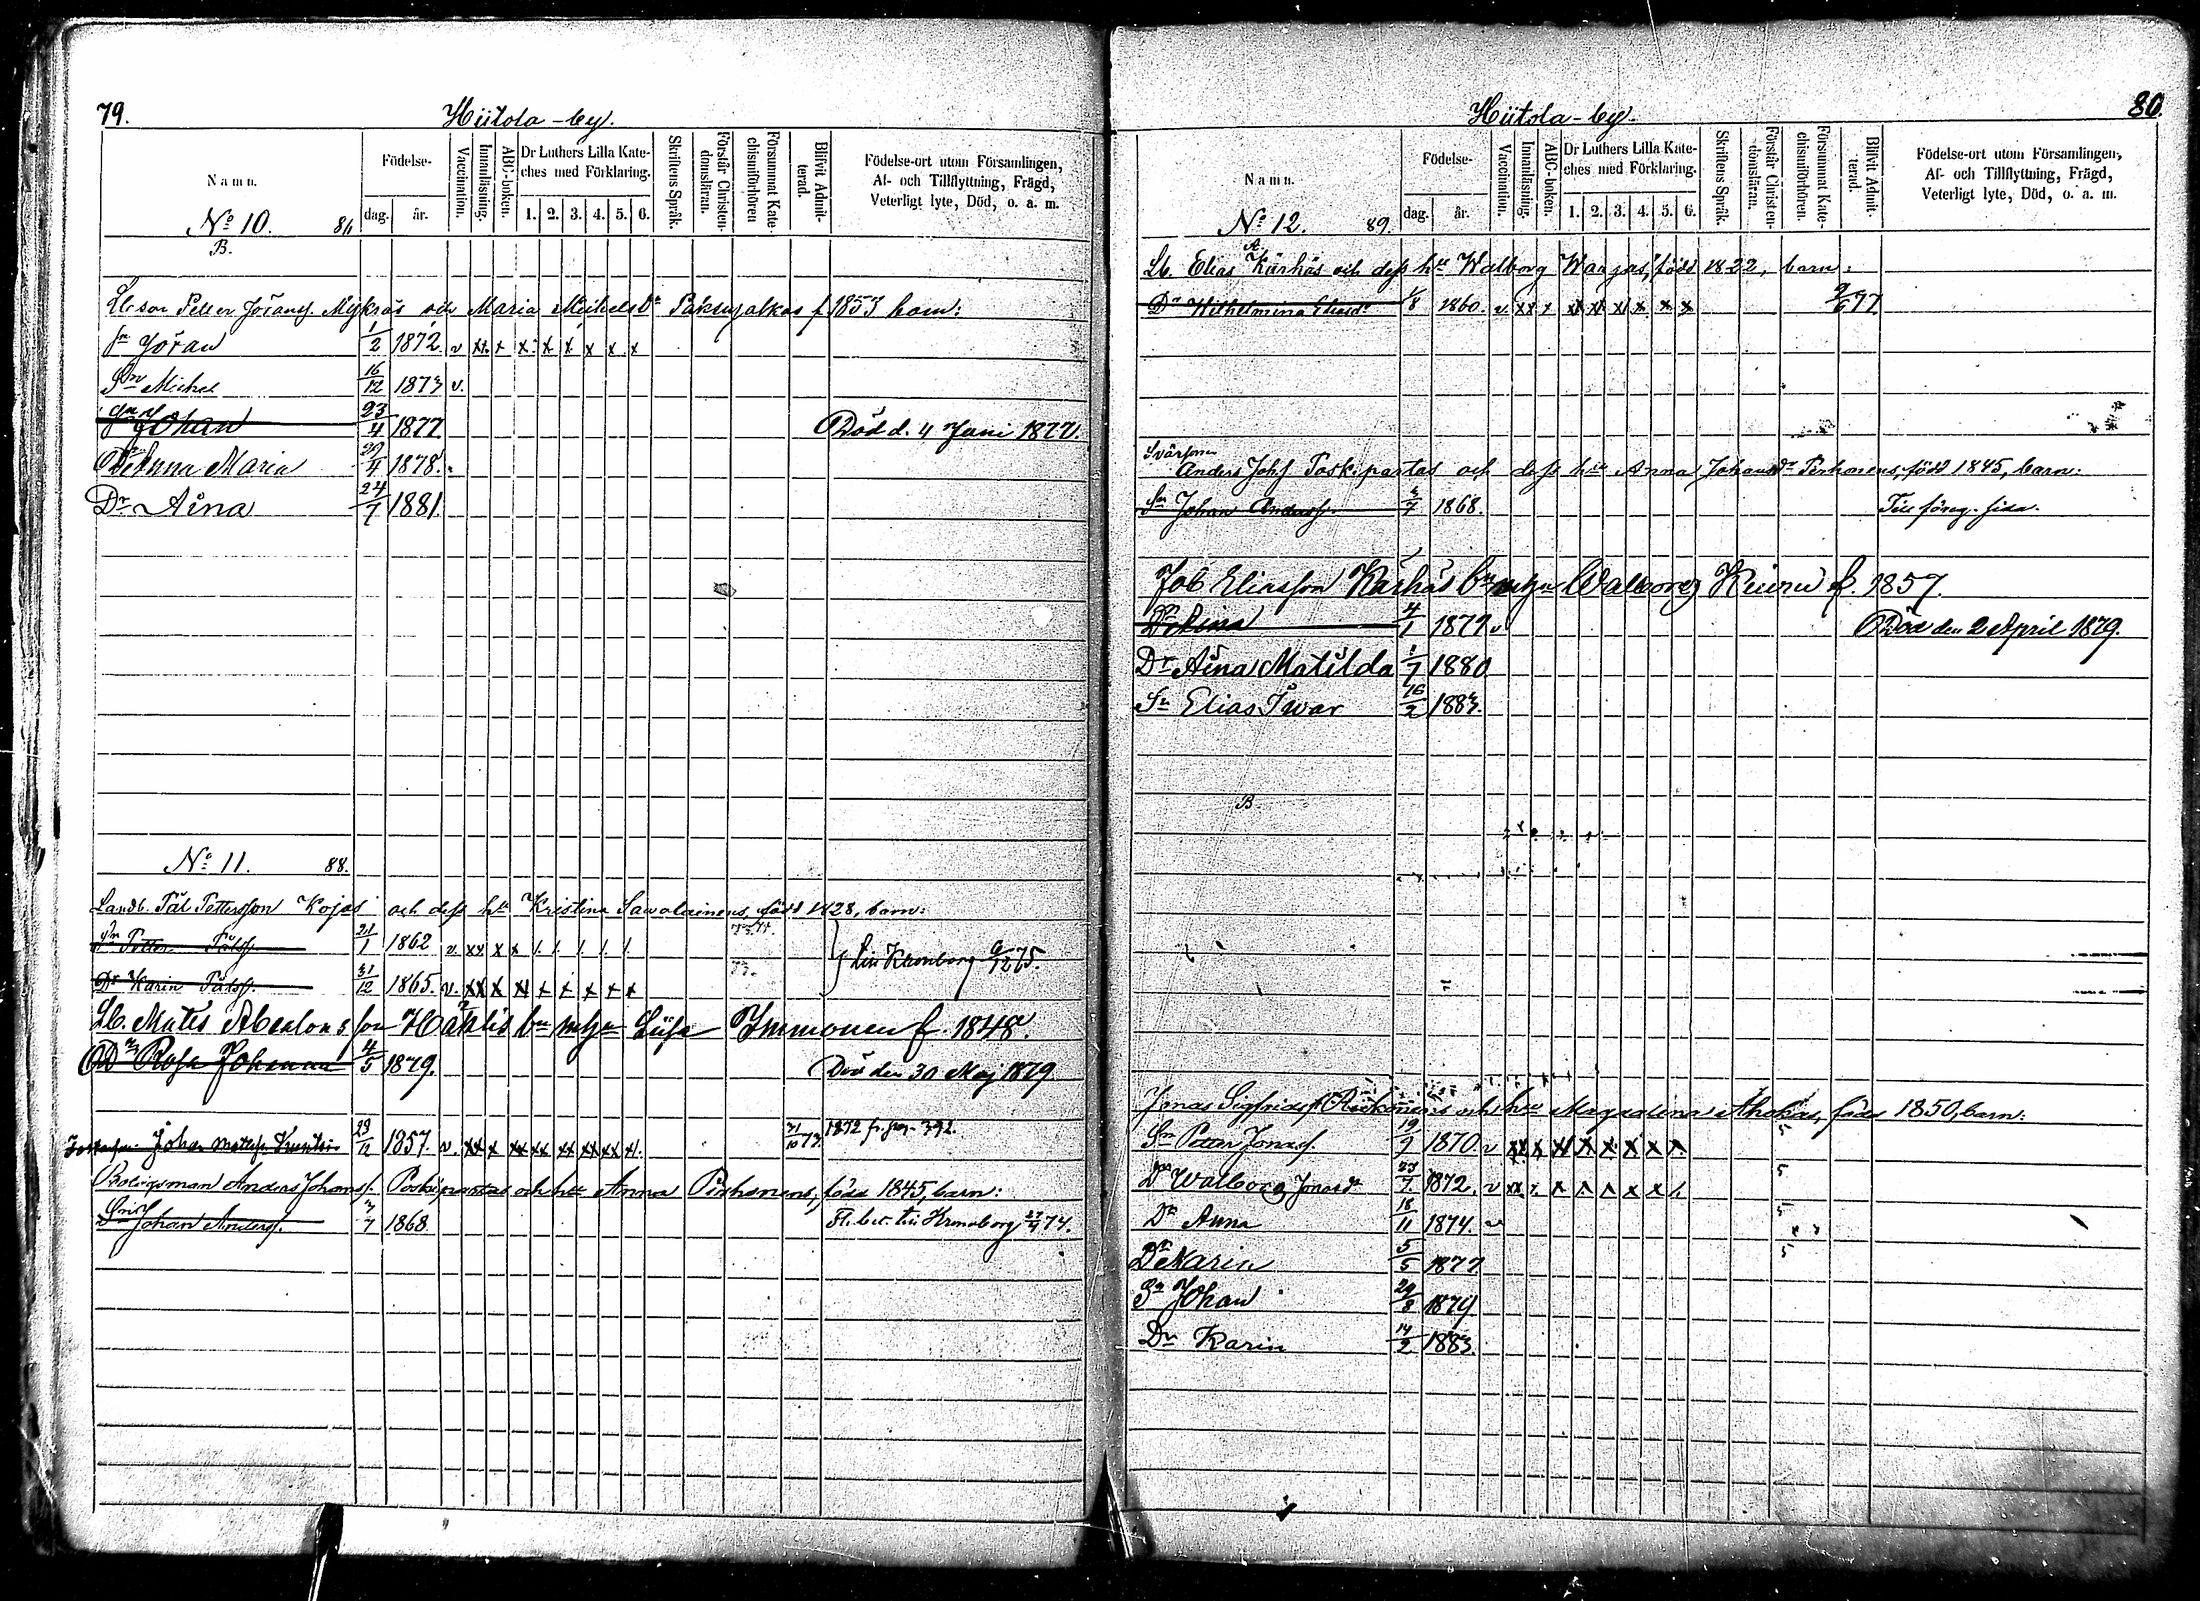 79.
Hiitola-by.
Namn.
Födelse-
dag.
år.
Vaccination.
Innanläsning.
ABC-boken.
Dr Luthers Lilla Kate-
ches med Förklaring.
1. 2. 3. 4. 5. 6.
Skriftens Språk.
Förstår Christen-
domsläran.
Försummat Kate-
chismiförhören
Blifvit Admit-
terad.
Födelse-ort utom Församlingen,
Af- och Tillflyttning, Frägd,
Veterligt lyte, Död, o. a. m.
No 10.
B.
Petter Jöranss. och Maria Michelsdr f. 1853 barn:
Sn Jöran 1/2 1872. v xx x x x x x x x
Sn Michel 16/12 1873 v.
Sn Johan 23/4 1877 Död d. 4 Juni 1877.
Dr Anna Maria 4 1878.
Dr Aina 24/7 1881.
No 11. 88.
Landb. Pål Pettersson Kojas och dess hu Kristina Sawolainens, född 1828, barn:
Sn Petter Pålss. 21/1 1862 v. xx x x
Till Kronborg 75.
Dr Karin Pålsd. 31/12 1865. v. xx x xx x x x x x
Lb. Mats Abelons son f. 1848.
Dr Rosa Johanna 4/5 1879. Död den 30 Maj 1879
Johan Matss. 1857. v. xx x xx xx xx xx xx 31/10 73. 1872 fr. pag. 392.
Bolagsman Anders Johanss. Poskiparta och hu Anna Pirhonens, född 1845, barn:
Johan Anderss. 7 1868 Fl. bet. till Kronoborg 74.
80.
Hiitola-by.
Namn.
Födelse-
dag.
år.
Vaccination.
Innanläsning.
ABC-boken.
Dr Luthers Lilla Kate-
ches med Förklaring.
1. 2. 3. 4. 5. 6.
Skriftens Språk.
Förstår Christen-
domsläran.
Försummat Kate-
chismiförhören.
Blifvit Admit-
terad.
Födelse-ort utom Församlingen,
Af- och Tillflyttning, Frägd,
Veterligt lyte, Död, o. a. m.
No 12. 89.
A.
Lb. Elias Kärhäs och dess hu Walborg född 1822, barn:
Dr Wilhelmina Eliasdr 1/8 1860. v. xx x xx xx xx x x x 77
Svärson
Anders Johss Poskipartas och dess hu Anna Johansdr Pirhonens, född 1845, barn:
Sn Johan Anderss. 7 1868. Till föreg. sida.
Job Eliasson Kärhäs Walborg Kiuru f. 1857.
Dr Aina 4/1 1879 v Död den 2 April 1879.
Dr Aina Matilda 1/7 1880
Sn Elias Iwar 16/2 1883.
B
Jonas Sigfridss. och hu Magdalena Ahokas, född 1850, barn:
Sn Petter Jonass. 19/9 1870. v xx x xx x x x x x 5
Dr Walborg Jonasdr 7 1872. v xx x x x x x x 5
Dr Anna 18/11 1874. v 5
Dr Karin 5/5 1877 5
Sn Johan 29/8 1879
Dr Karin 14/2 1883.